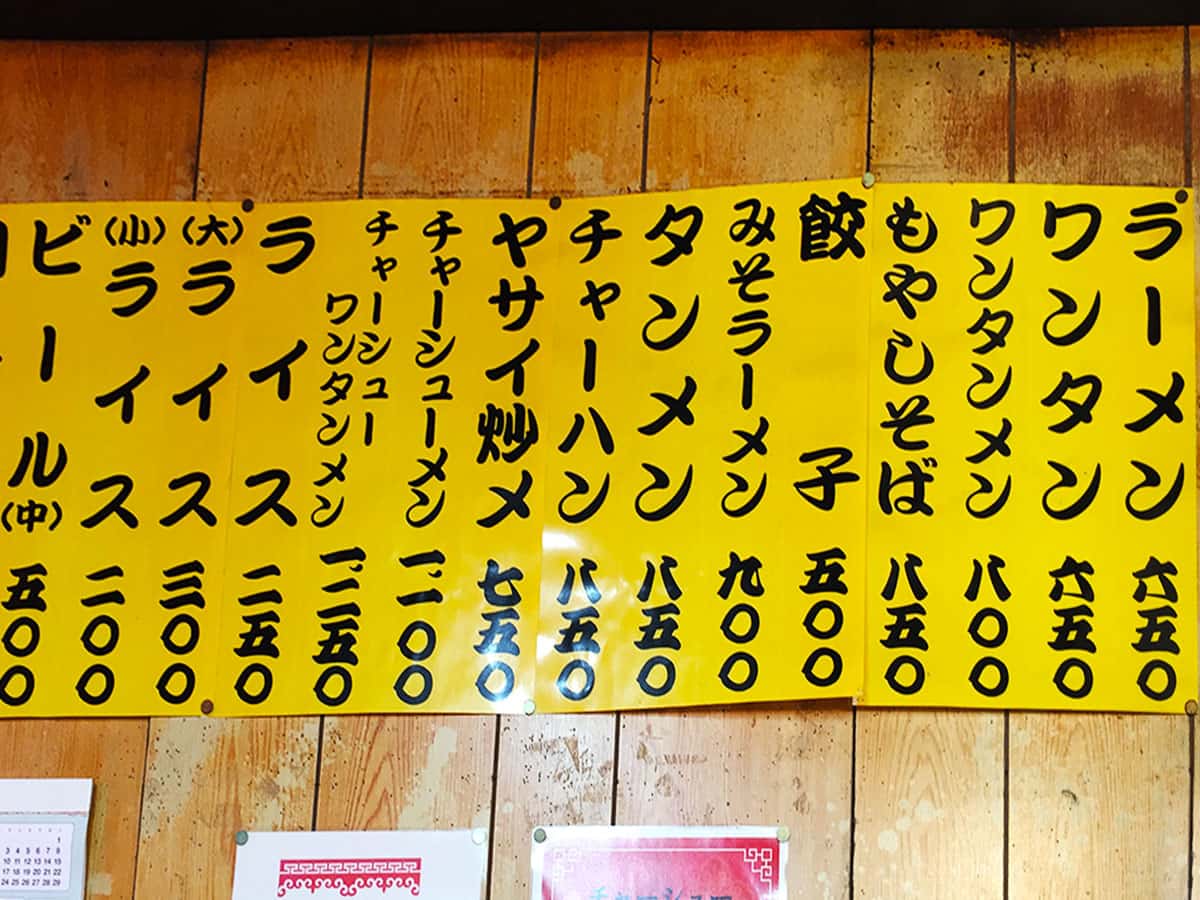 ラーメン 六五〇
ワンタン 六五〇
ワンタンメン 八〇〇
もやしそば 八五〇
餃子 五〇〇
みそラーメン 九〇〇
タンメン 八五〇
チャーハン 八五〇
ヤサイ炒メ 七五〇
チャーシューメン 一、一〇〇
チャーシュー
ワンタンメン 一、二五〇
ライス 二五〇
(大)ライス 三〇〇
(小)ライス 二〇〇
ビール(中) 五〇〇
1
3 4 5 6 7 8
10 11 12 13 14 15
17 18 19 20 21 22
24 25 26 27 28 29